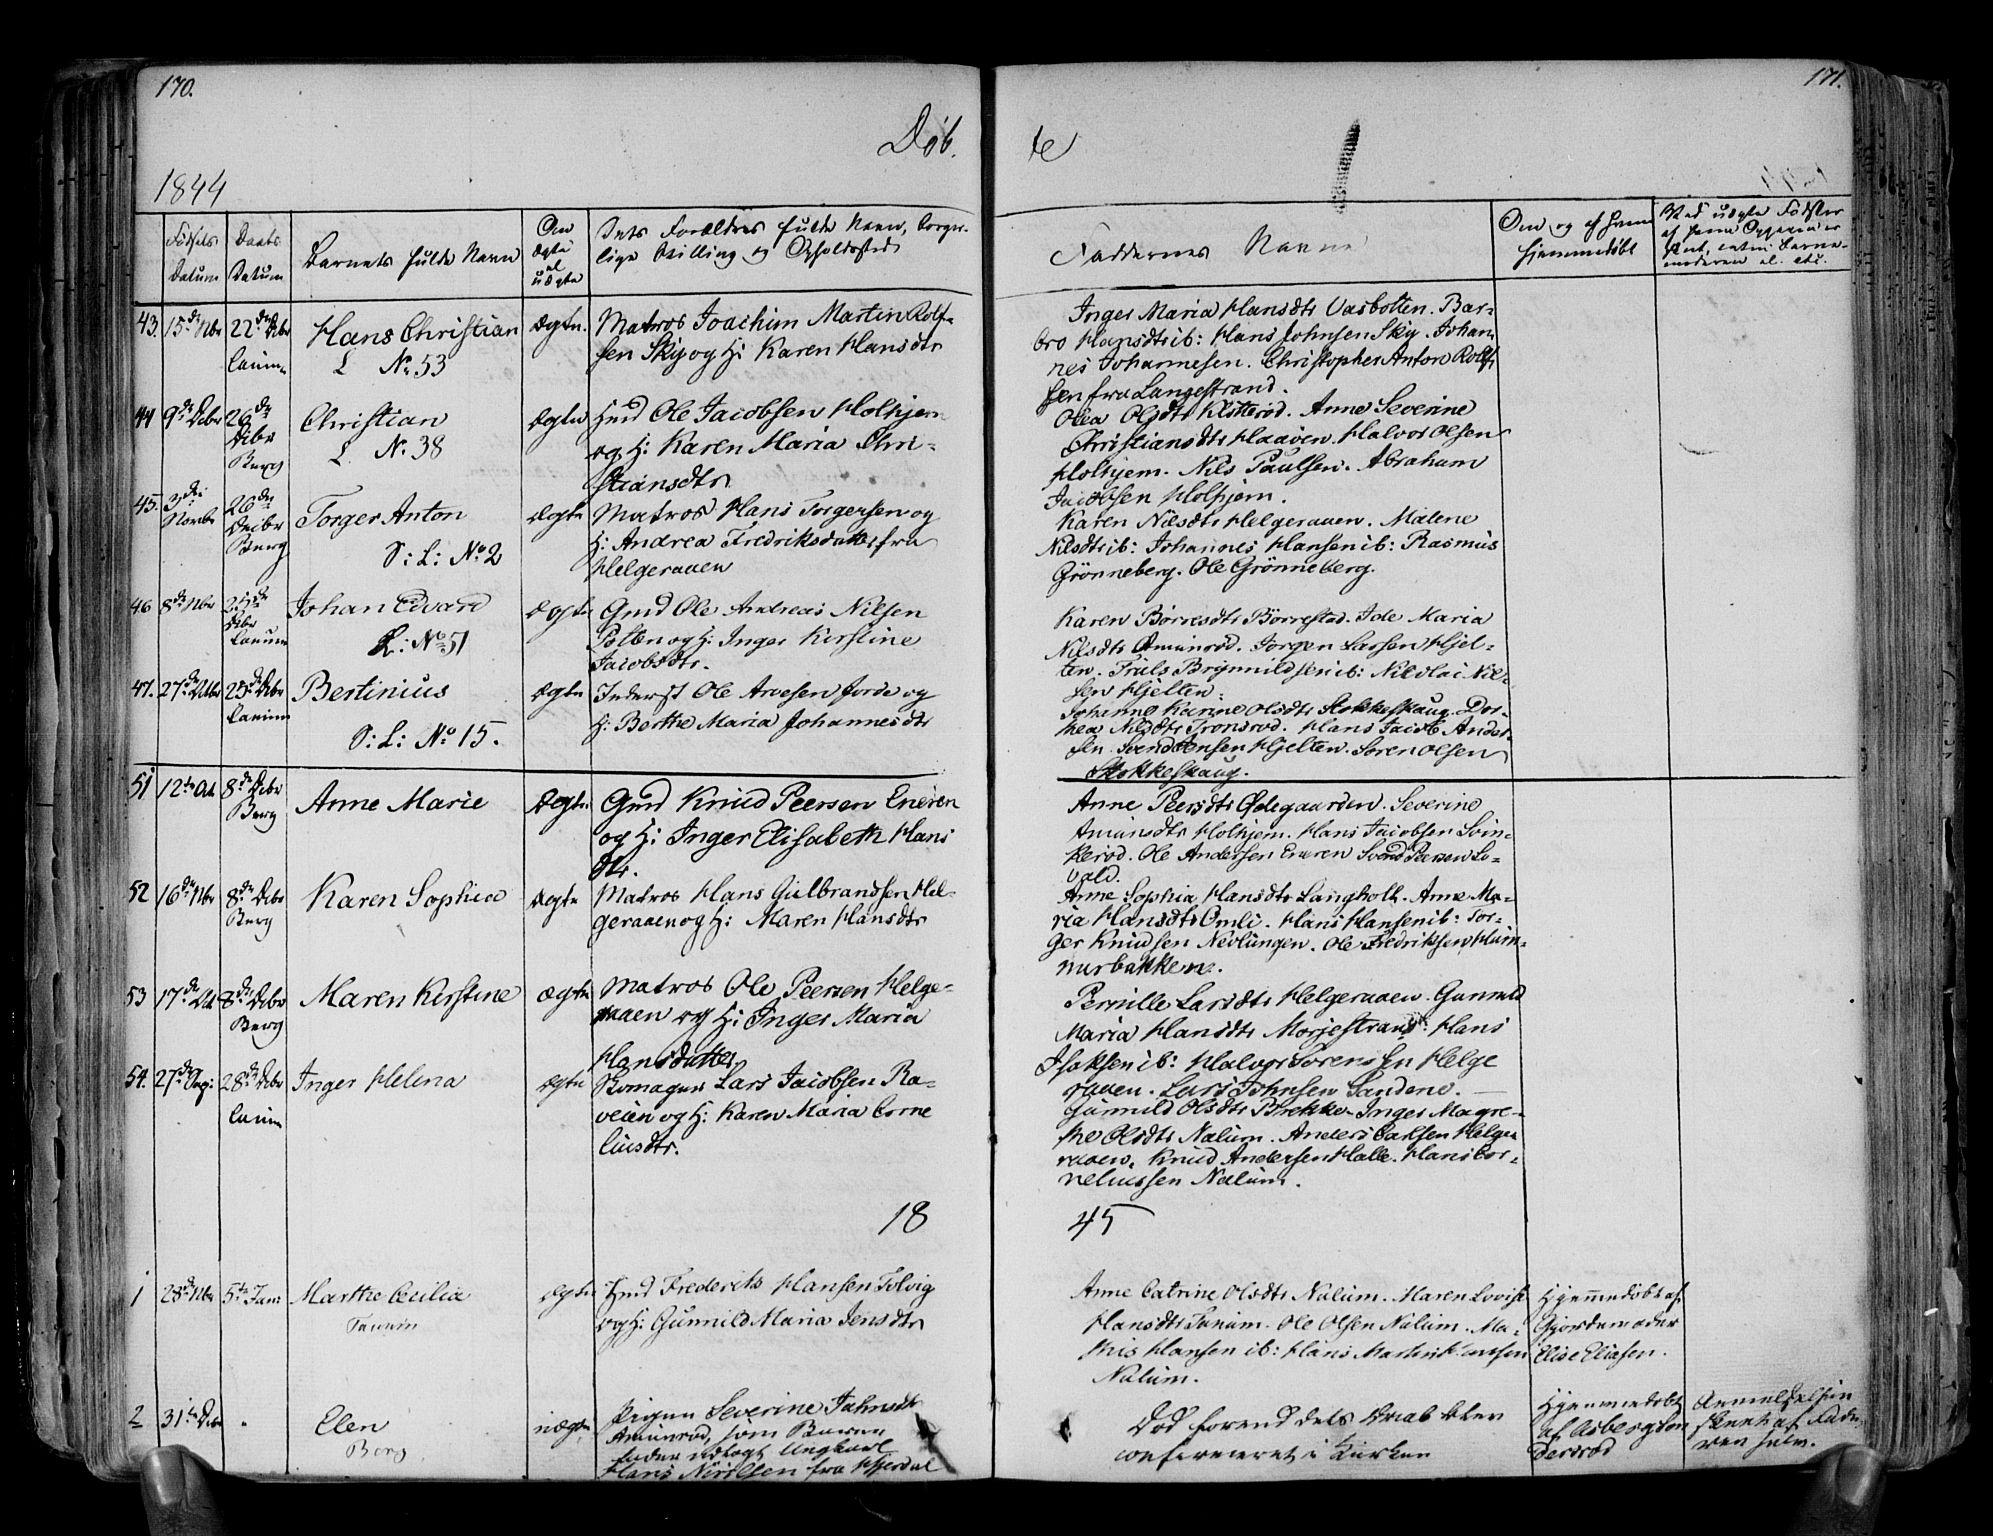 170.
171.
Døb.
te
1844
Fødsels Datum
Daabs Datum
Barnets fulde Navn
Om ægte el uægte
Dets Forældres fulde Navn, borger-
lige Stilling og Opholdssted
Faddernes Navne
Om og af hvem
hjemmedøbt
Ved uægte Fødsler
43. 15de Nbr 22de Debr Hans Christian ægte. Matros Joachim Martin Rolf-
Tanum L No 53 sen Sky og H: Karen Hansdtr
Inger Maria Hansdtr Vasbotten. Bar-
bro Hansdtr ib: Hans Johnsen Sky. Johan-
nes Johannesen. Christopher Anton Rolf-
sen fra Langestrand.
44 9de Debr 26de Debr Berg Christian ægte Hmd Ole Jacobsen Holhjem
L. No. 38 og H: Karen Maria Chri-
stiansdtr
Olea Olsdtr Klotterød. Anne Severine
Christiansdtr Haaven. Halvor Olsen
Holhjem. Nils Paulsen. Abraham
Jacobsen Holhjem.
45. 3die Novbr 26de Decbr Berg Torger Anton ægte Matros Hans Torgersen og
S: L: No 2 H: Andrea Fredriksdatter fra
Helgeraaen
Karen Nilsdtr Helgeraaen. Malene
Nilsdtr ib: Johannes Hansen ib: Rasmus
Grönneberg. Ole Grönneberg.
46 8de Nbr 25de Debr Tanum Johan Edvard ægte Gmd Ole Andreas Nilsen
L: No 51 Potten og H: Inger Kirstine
Jacobsdtr.
Karen Börresdtr Börrestad. Ide Maria
Nilsdtr Amunrød. Jørgen Larssen Hjel-
ten. Truls Brynnildsen ib: Nikolai Nil-
sen Hjelten.
47. 27de Octbr 25de Debr Tanum Bertinius ægte Inderst Ole Arvesen Jorde og
S: L: No 15. H: Berthe Maria Johannesdtr
Johanne Karine Olsdtr Stokkeskaug. Dor-
thea Nilsdtr Tronsrød. Hans Jacob Ander-
sen. Svend Hjelten. Soren Olsen
Stokkeskaug.
51 12te Oct 8de Debr Berg Anne Marie ægte Gmd Knud Peersen Eneren
og H: Inger Elisabeth Hans
dtr.
Anne Peersdtr Ødegaarden. Severine
Amundsdtr Holhjem. Hans Jacobsen Svin-
kerød. Ole Andersen Eneren Svend Peersen Lo-
vald.
52 16de Nbr 8de Debr Berg Karen Sophia ægte Matros Hans Gulbrandsen Hel-
geraaen og H: Maren Hansdtr
Anne Sophia Hansdtr Langholt. Anne Ma-
ria Hansdtr Omli. Hans Hansen ib: Tor-
ger Knudsen Nevlungen. Ole Fredriksen Hum-
merbakken.
53 17de Oct 8de Debr Berg Maren Kirstine ægte Matros Ole Peersen Helge-
raaen og H: Inger Maria
Hansdatter
Pernille Larsdtr Helgeraaen. Gunnild
Maria Hansdtr Mörjestrand. Hans
Isaksen ib: Halvor Sorensen Helge
raaen. Lars Johnsen Sandene.
54. 27de Aug: 28de Debr Tanum Inger Helena ægte Lars Jacobsen Ra-
veien og H: Karen Maria Corne
liusdtr.
Gunnild Olsdtr Brekke. Inger Magre-
the Olsdtr Nalum. Anders Carlsen Helge
raaen. Knud Andersen Halle. Hans Cor-
neliussen Nalum.
18
45
1 28de Nbr 5te Jan: Marthe Cecilia ægte Hmd Frederik Hansen Tolvig
Tanum og H: Gunnild Maria Jensdtr
Anne Catrine Olsdtr Nalum. Maren Lovise
Hansdtr Tanum. Ole Olsen Nalum. Ma-
this Hansen ib: Hans Martin Hansen
Nalum.
Hjemmedøbt af
Gjordemoder
Elise Eliasen.
2 31te Debr " Elen uægte Pigen Severine Jahnsdtr
Berg Amunrød, som Barne-
fader udlagt Ungkarl
Hans Nirilsen fra Hjerdal
Död forend dets Daab blev
confirmeret i Kirken
Hjemmedøbt
af Asbergson
Derrød
Anmeldelsen
skeet af Fade-
ren selv.